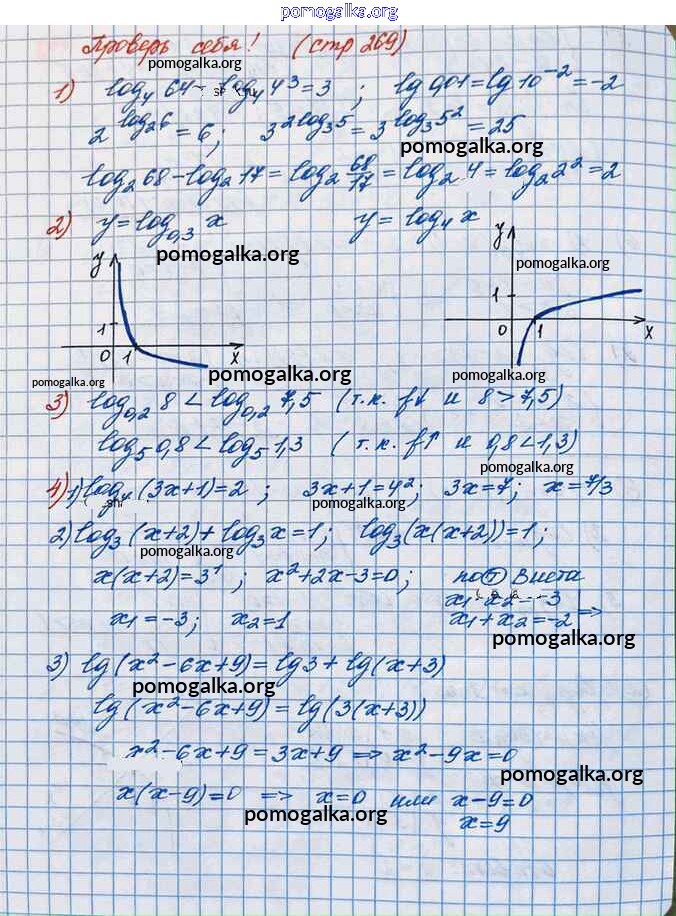 pomogalka.org
Проверь себя! (стр 269)
pomogalka.org
1) log₄ 64 = log₄ 4³ = 3 ; lg 0,01 = lg 10⁻² = -2
2^(log₂6) = 6; 3^(2log₃5) = 3^(log₃5²) = 25
pomogalka.org
log₂68 - log₂17 = log₂ 68/17 = log₂ 4 = log₂2² = 2
2) y = log₀,₃ x y = log₄ x
pomogalka.org
y y
pomogalka.org
1 1
0 1 x 0 1 x
pomogalka.org pomogalka.org pomogalka.org
3) log₀,₂ 8 < log₀,₂ 7,5 (т.к. f↓ и 8 > 7,5)
log₅ 0,8 < log₅ 1,3 (т.к. f↑ и 0,8 < 1,3)
pomogalka.org
4) 1) log₄ (3x+1) = 2 ; 3x+1 = 4²; 3x = 7; x = 7/3
pomogalka.org
2) log₃ (x+2) + log₃ x = 1; log₃(x(x+2)) = 1;
pomogalka.org
x(x+2) = 3¹ ; x²+2x-3=0; по Т Виета
x₁ = -3; x₂ = 1 x₁ x₂ = -3
x₁+x₂ = -2 =>
pomogalka.org
3) lg(x²-6x+9) = lg3 + lg(x+3)
pomogalka.org
lg(x²-6x+9) = lg(3(x+3))
x²-6x+9 = 3x+9 => x²-9x=0
pomogalka.org
x(x-9)=0 => x=0 или x-9=0
pomogalka.org
x=9